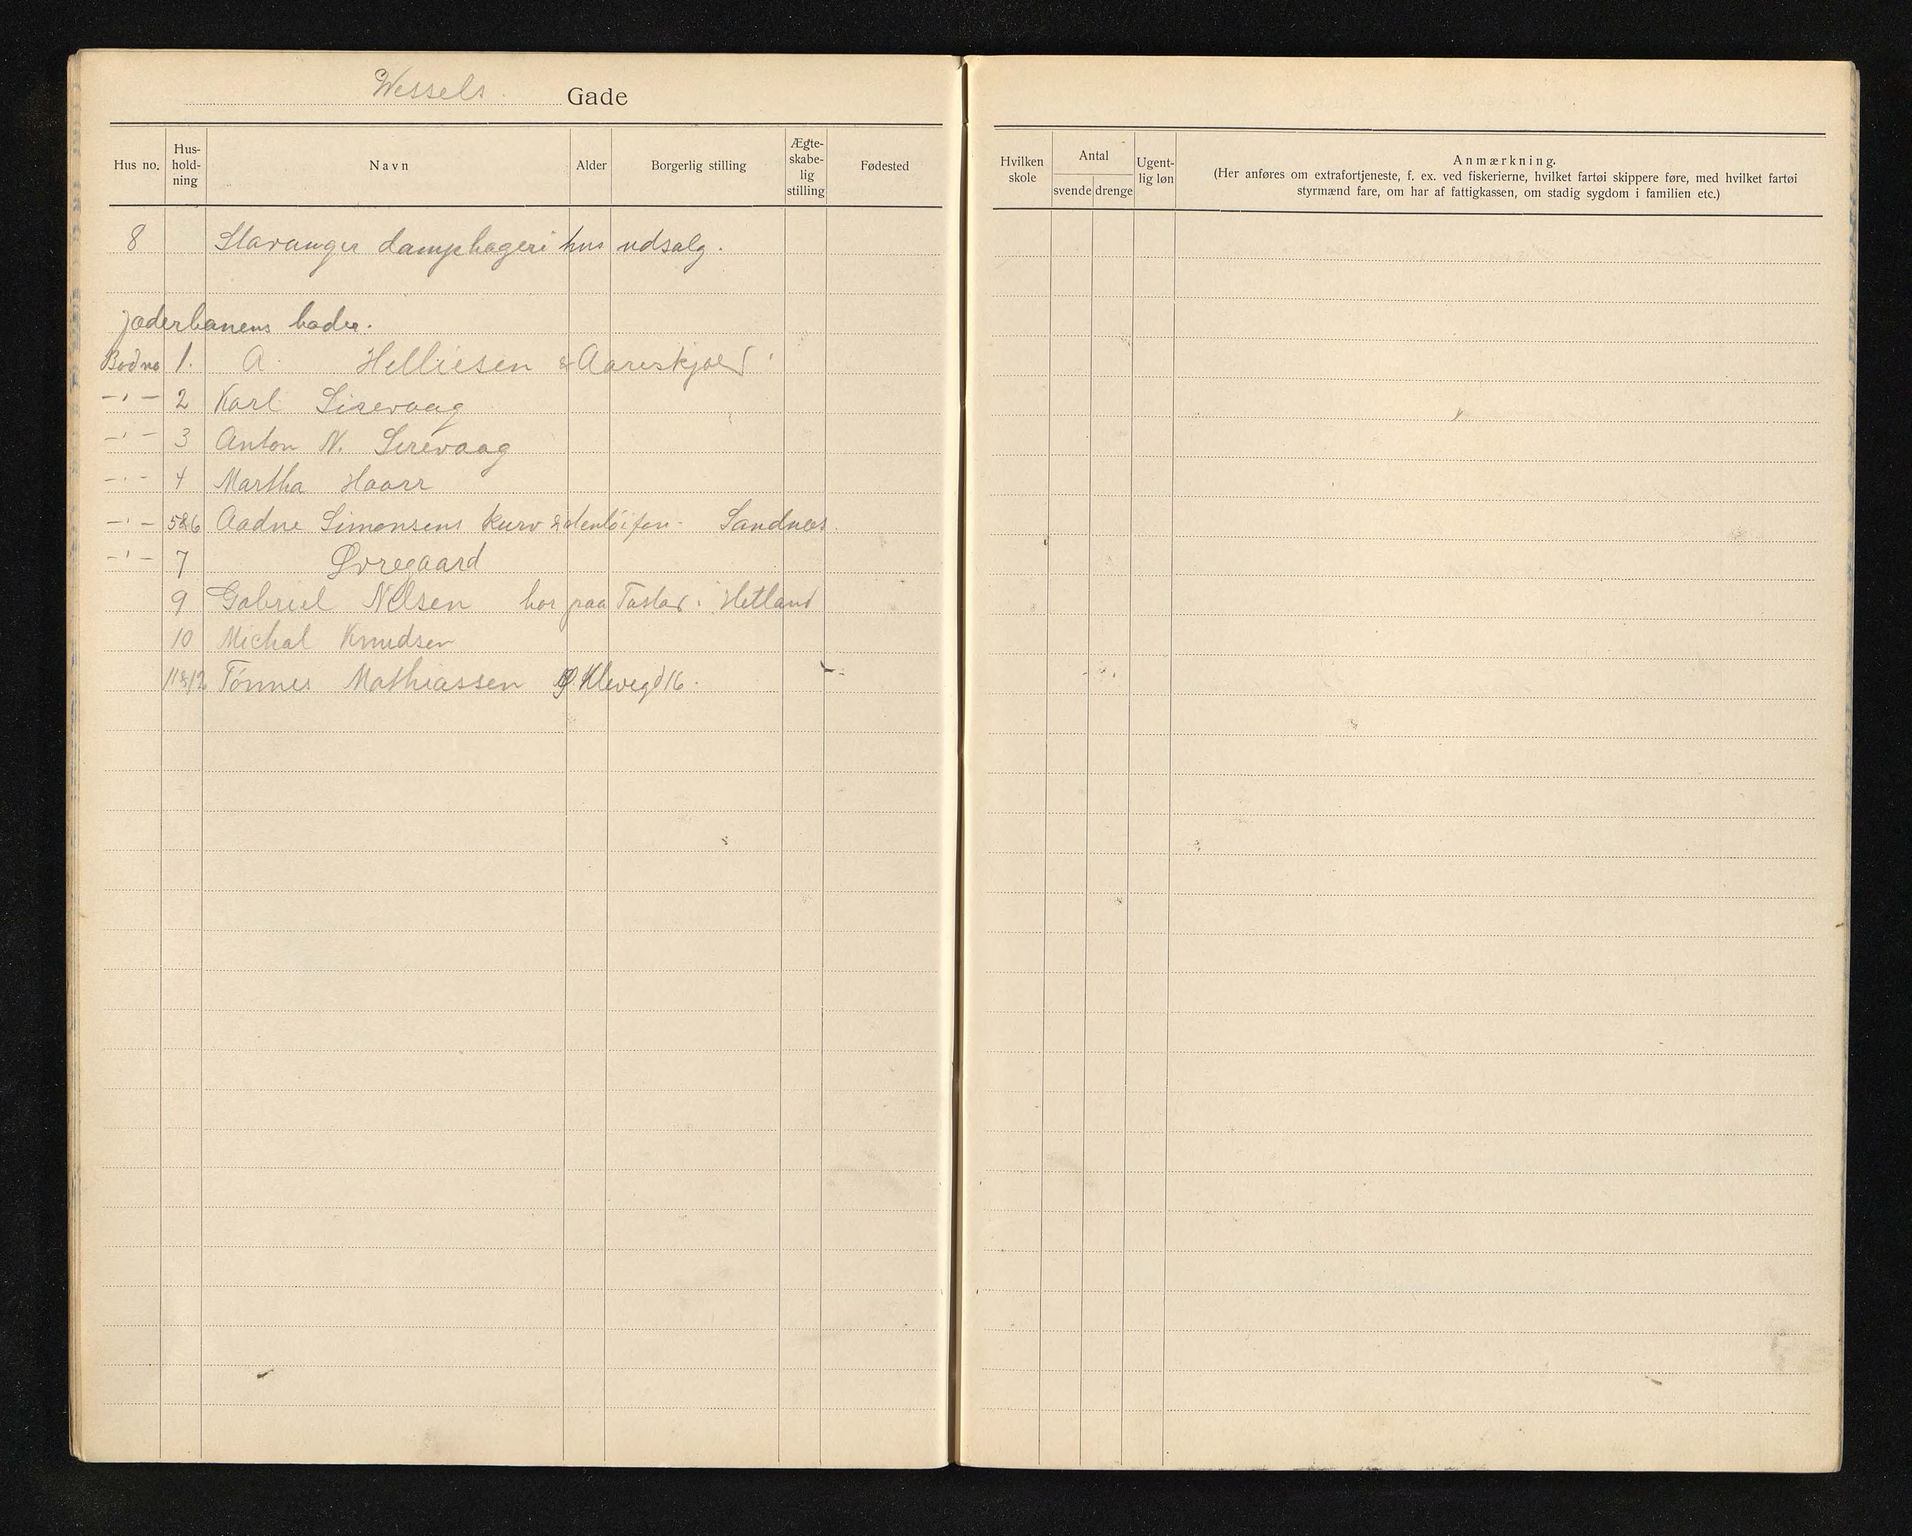 Wessels Gade
Hus no. Hus-hold-ning Navn Alder Borgerlig stilling Ægte-skabe-lig stilling Fødested
8 Stavanger dampbageri hus udsalg.
Jæderbanens boder.
Bod no 1. A. Helliesen & Aareskjold
-"- 2 Karl Sirevaag
-"- 3 Anton N. Sirevaag
-"- 4 Martha Haarr
-"- 5&6 Aadne Simonsens kurv & Sandnæs.
-"- 7 Øvregaard
9 Gabriel Nelsen bor paa Tasta i Hetland
10 Michal Knudsen
11&12 Tønnes Mathiassen Klevegd 16.
Hvilken skole Antal svende drenge Ugent-lig løn Anmærkning.
(Her anføres om extrafortjeneste, f. ex. ved fiskerierne, hvilket fartøi skippere føre, med hvilket fartøi
styrmænd fare, om har af fattigkassen, om stadig sygdom i familien etc.)